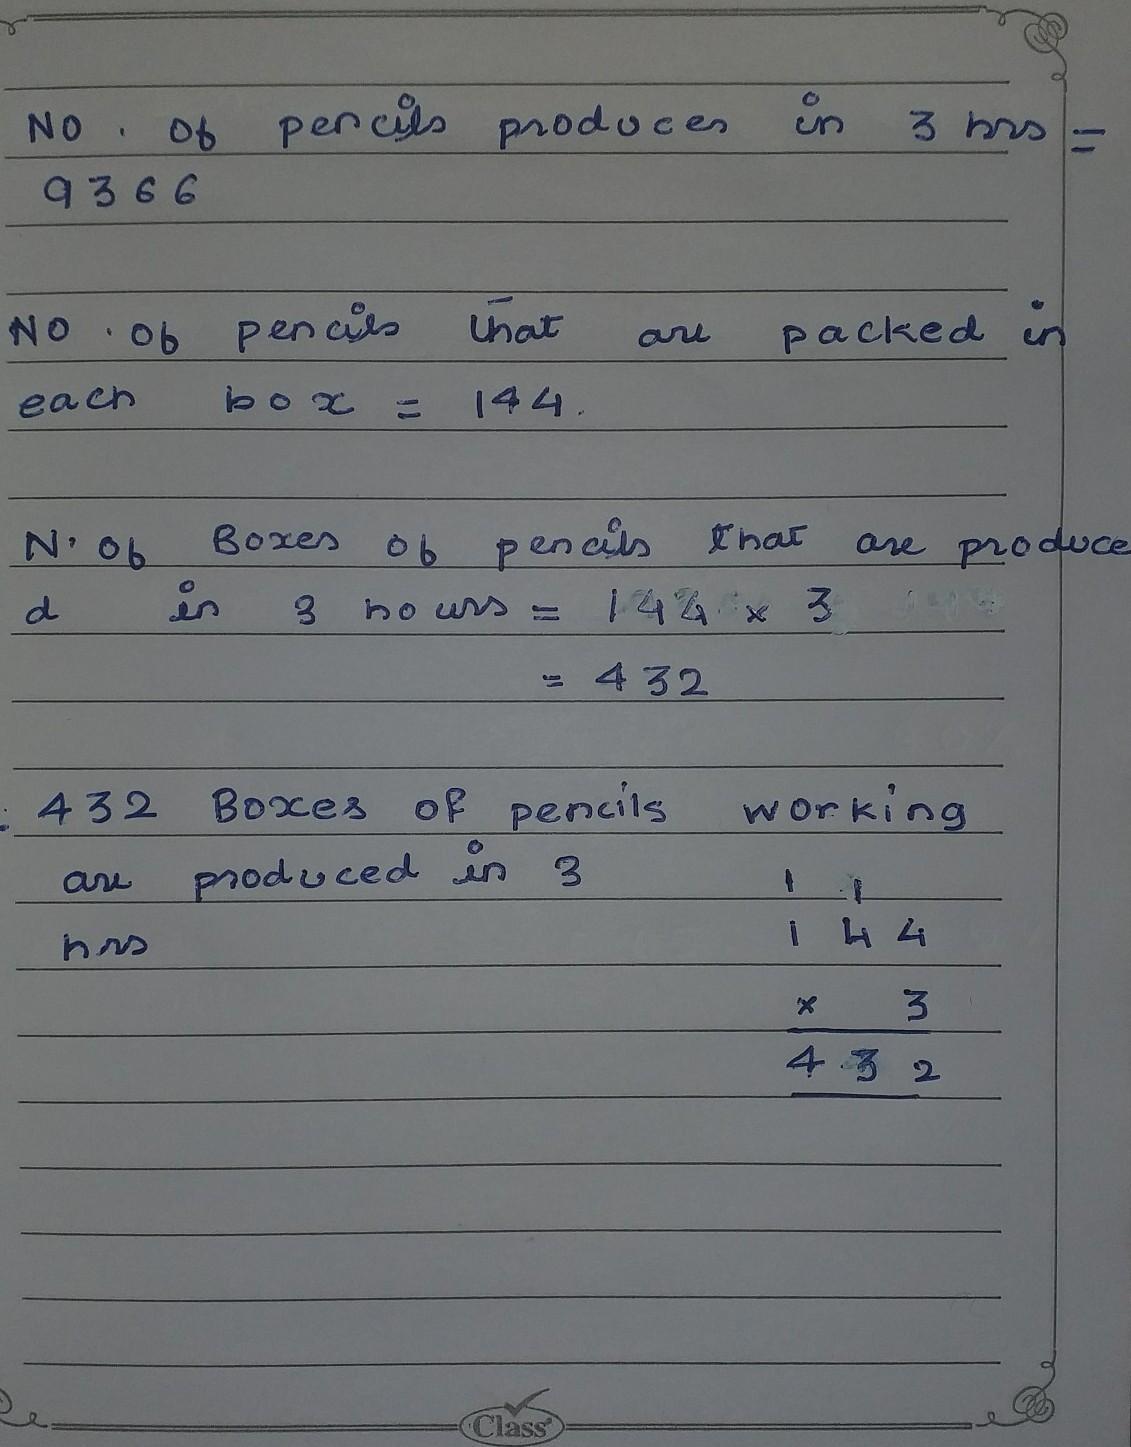 No. of pencils produces in 3 hrs =
9366
No. of pencils that are packed in
each box = 144.
N. of Boxes of pencils that are produce
d in 3 hours = 144 x 3
= 432
: 432 Boxes of pencils working
are produced in 3 1 1
hrs 1 4 4
x 3
4 3 2
Class